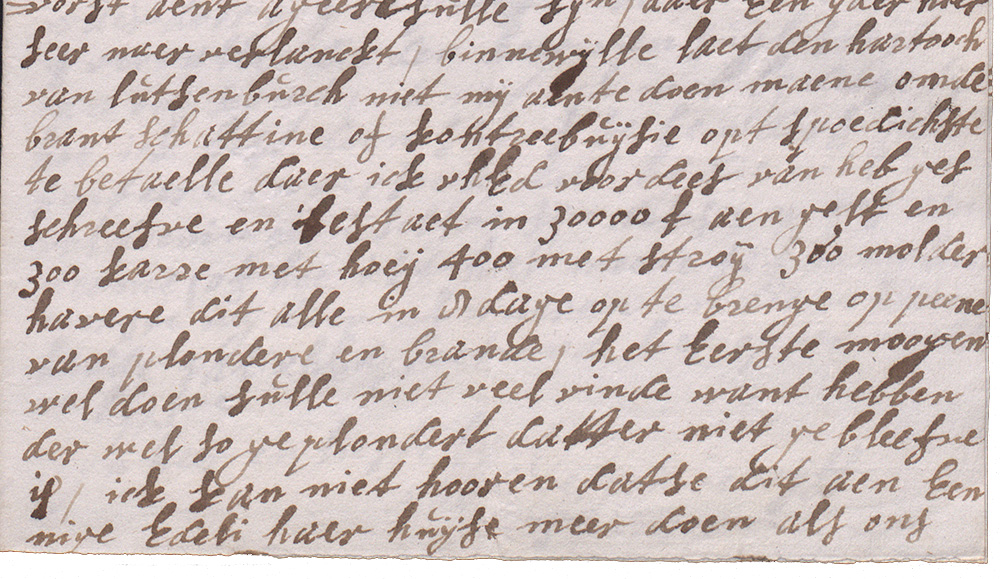 vorst dent ageere sulle syn, daer Een yder hier
seer naer verlanckt, binnewylle laet den hartooch
van lutsenburch niet mij aente doen maene omde
brant schattine of kontreebuijsie opt spoedichste
te betaelle daer ick uhEd voor dees van heb ges
schreefve en bestaet in 30000 f aen gelt en
300 karre met hoeij 400 met stroij 300 molder
havere dit alle in 8 dage op te brenge op peene
van plondere en brande, het Eerste moogen
wel doen sulle niet veel vinde want hebben
der wel so geplondert datter niet gebleefve
is, ick kan niet hooren datse dit aen Een
nige Edeli haer huijse meer doen als ons